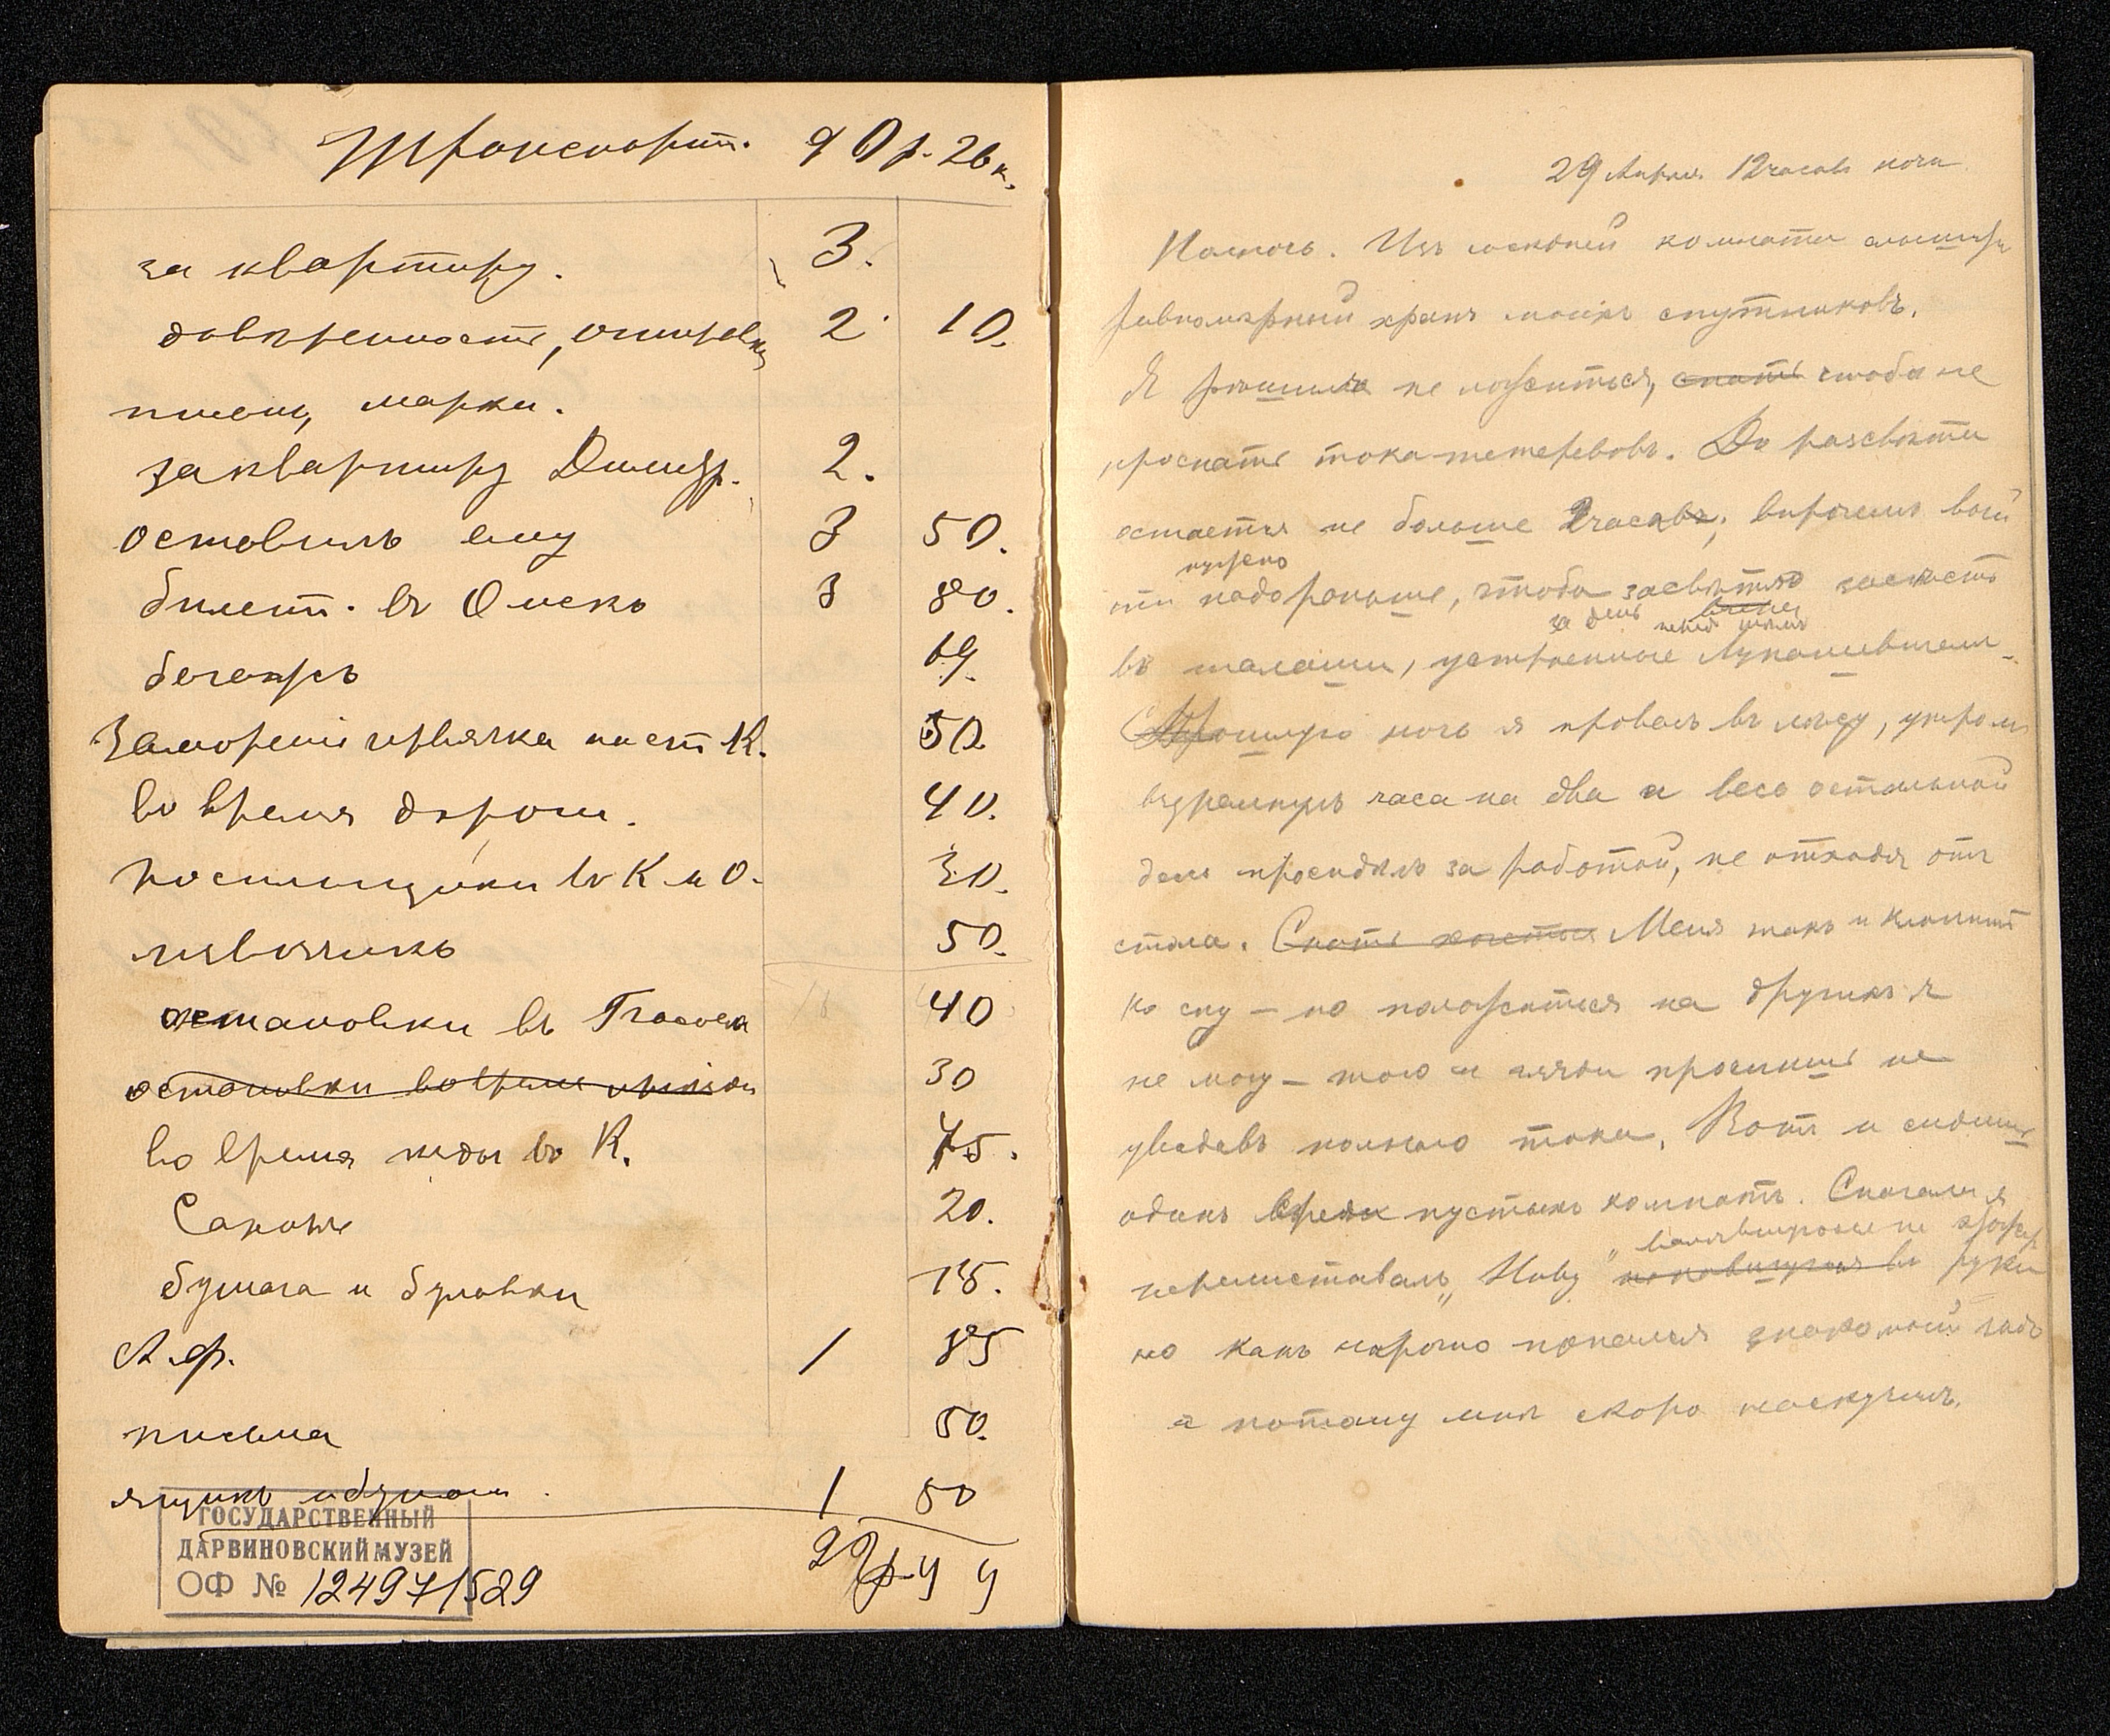 Транспортъ. 90 р. 26 к.
за квартиру. 3.
довѣренность, отправка 2 10.
писемъ, марки.
за квартиру Дмитр. 2.
оставилъ ему 3 50.
билетъ въ Омскъ 3 80.
69.
Заморенiе червячка на ст К. 50.
во время дороги. 40.
носильщики въ К и О. 30.
извозчикъ 50.
остановки въ 40
остановки во время 30
во время езды въ К. 75.
Сапоги 20.
бумага и булавки 15.
А. Ф. 1 85
письма 50.
ящикъ и бумага. 1 50
22 р. 44
ГОСУДАРСТВЕННЫЙ
ДАРВИНОВСКИЙ МУЗЕЙ
ОФ № 12497/529
29 Апрѣля 12 часовъ ночи
Полночь. Изъ сосѣдней комнаты слышенъ
равномѣрный храпъ моихъ спутниковъ.
Я рѣшился не ложиться, спать чтобы не
проспать тока тетеревовъ. До разсвѣта
остается не больше 2 часовъ; впрочемъ вый
нужно
ти надо раньше, чтобы засвѣтло засѣсть
за день передъ тѣмъ
въ шалаши, устроенные Лукашевичемъ.
Прошлую ночь я провелъ въ лѣсу, утромъ
вздремнулъ часа на два и весь остальной
день просидѣлъ за работой, не отходя отъ
стола. Спать хочется Меня такъ и клонитъ
ко сну – но положиться на другихъ я
не могу – того и гляди проспишь не
увидавъ полнаго тока. Вотъ и сидишь
одинъ среди пустыхъ комнатъ. Сначала я
перелистывалъ „Ниву" въ руки
но какъ нарочно попался знакомый годъ
а потому мнѣ скоро наскучилъ.